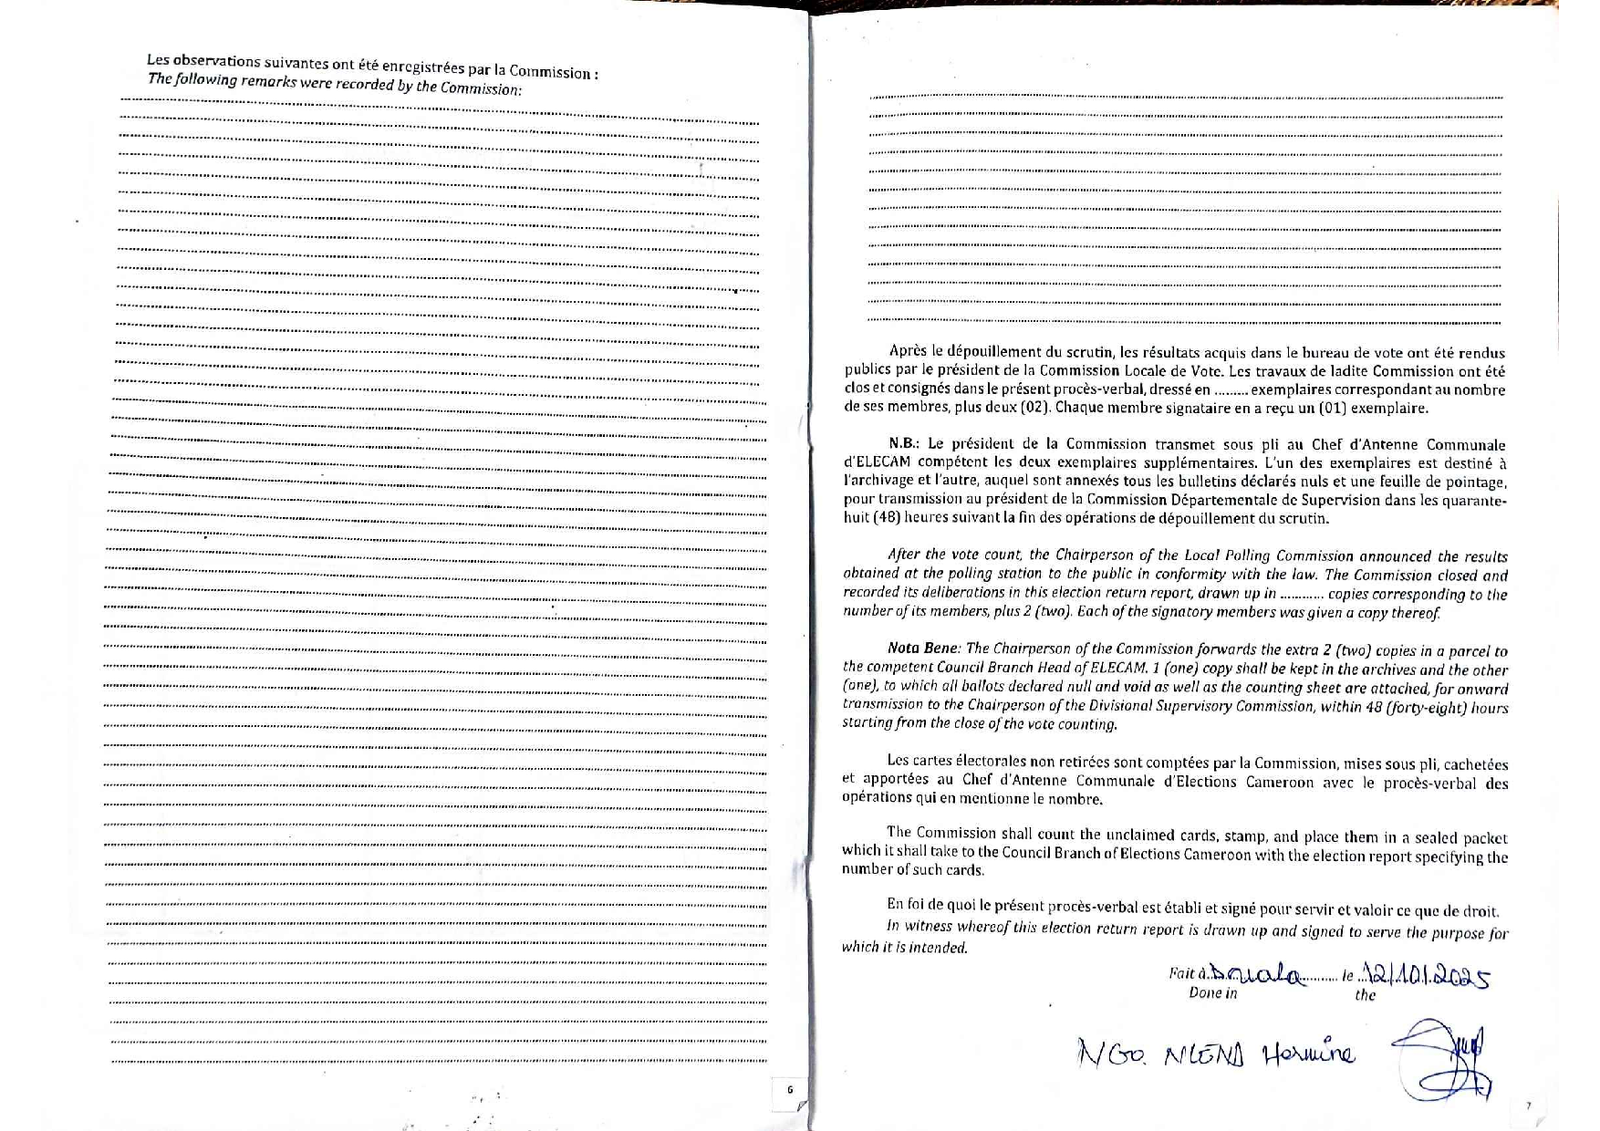 Les observations suivantes ont été enregistrées par la Commission :
The following remarks were recorded by the Commission:
6
Après le dépouillement du scrutin, les résultats acquis dans le bureau de vote ont été rendus
publics par le président de la Commission Locale de Vote. Les travaux de ladite Commission ont été
clos et consignés dans le présent procès-verbal, dressé en ......... exemplaires correspondant au nombre
de ses membres, plus deux (02). Chaque membre signataire en a reçu un (01) exemplaire.
N.B.: Le président de la Commission transmet sous pli au Chef d'Antenne Communale
d'ELECAM compétent les deux exemplaires supplémentaires. L'un des exemplaires est destiné à
l'archivage et l'autre, auquel sont annexés tous les bulletins déclarés nuls et une feuille de pointage,
pour transmission au président de la Commission Départementale de Supervision dans les quarante-
huit (48) heures suivant la fin des opérations de dépouillement du scrutin.
After the vote count, the Chairperson of the Local Polling Commission announced the results
obtained at the polling station to the public in conformity with the law. The Commission closed and
recorded its deliberations in this election return report, drawn up in ........... copies corresponding to the
number of its members, plus 2 (two). Each of the signatory members was given a copy thereof.
Nota Bene: The Chairperson of the Commission forwards the extra 2 (two) copies in a parcel to
the competent Council Branch Head of ELECAM. 1 (one) copy shall be kept in the archives and the other
(one), to which all ballots declared null and void as well as the counting sheet are attached, for onward
transmission to the Chairperson of the Divisional Supervisory Commission, within 48 (forty-eight) hours
starting from the close of the vote counting.
Les cartes électorales non retirées sont comptées par la Commission, mises sous pli, cachetées
et apportées au Chef d'Antenne Communale d'Elections Cameroon avec le procès-verbal des
opérations qui en mentionne le nombre.
The Commission shall count the unclaimed cards, stamp, and place them in a sealed packet
which it shall take to the Council Branch of Elections Cameroon with the election report specifying the
number of such cards.
En foi de quoi le présent procès-verbal est établi et signé pour servir et valoir ce que de droit.
In witness whereof this election return report is drawn up and signed to serve the purpose for
which it is intended.
Fait à Douala .......... le 12/10/2025
Done in the
NGO NLEND Hermine
7